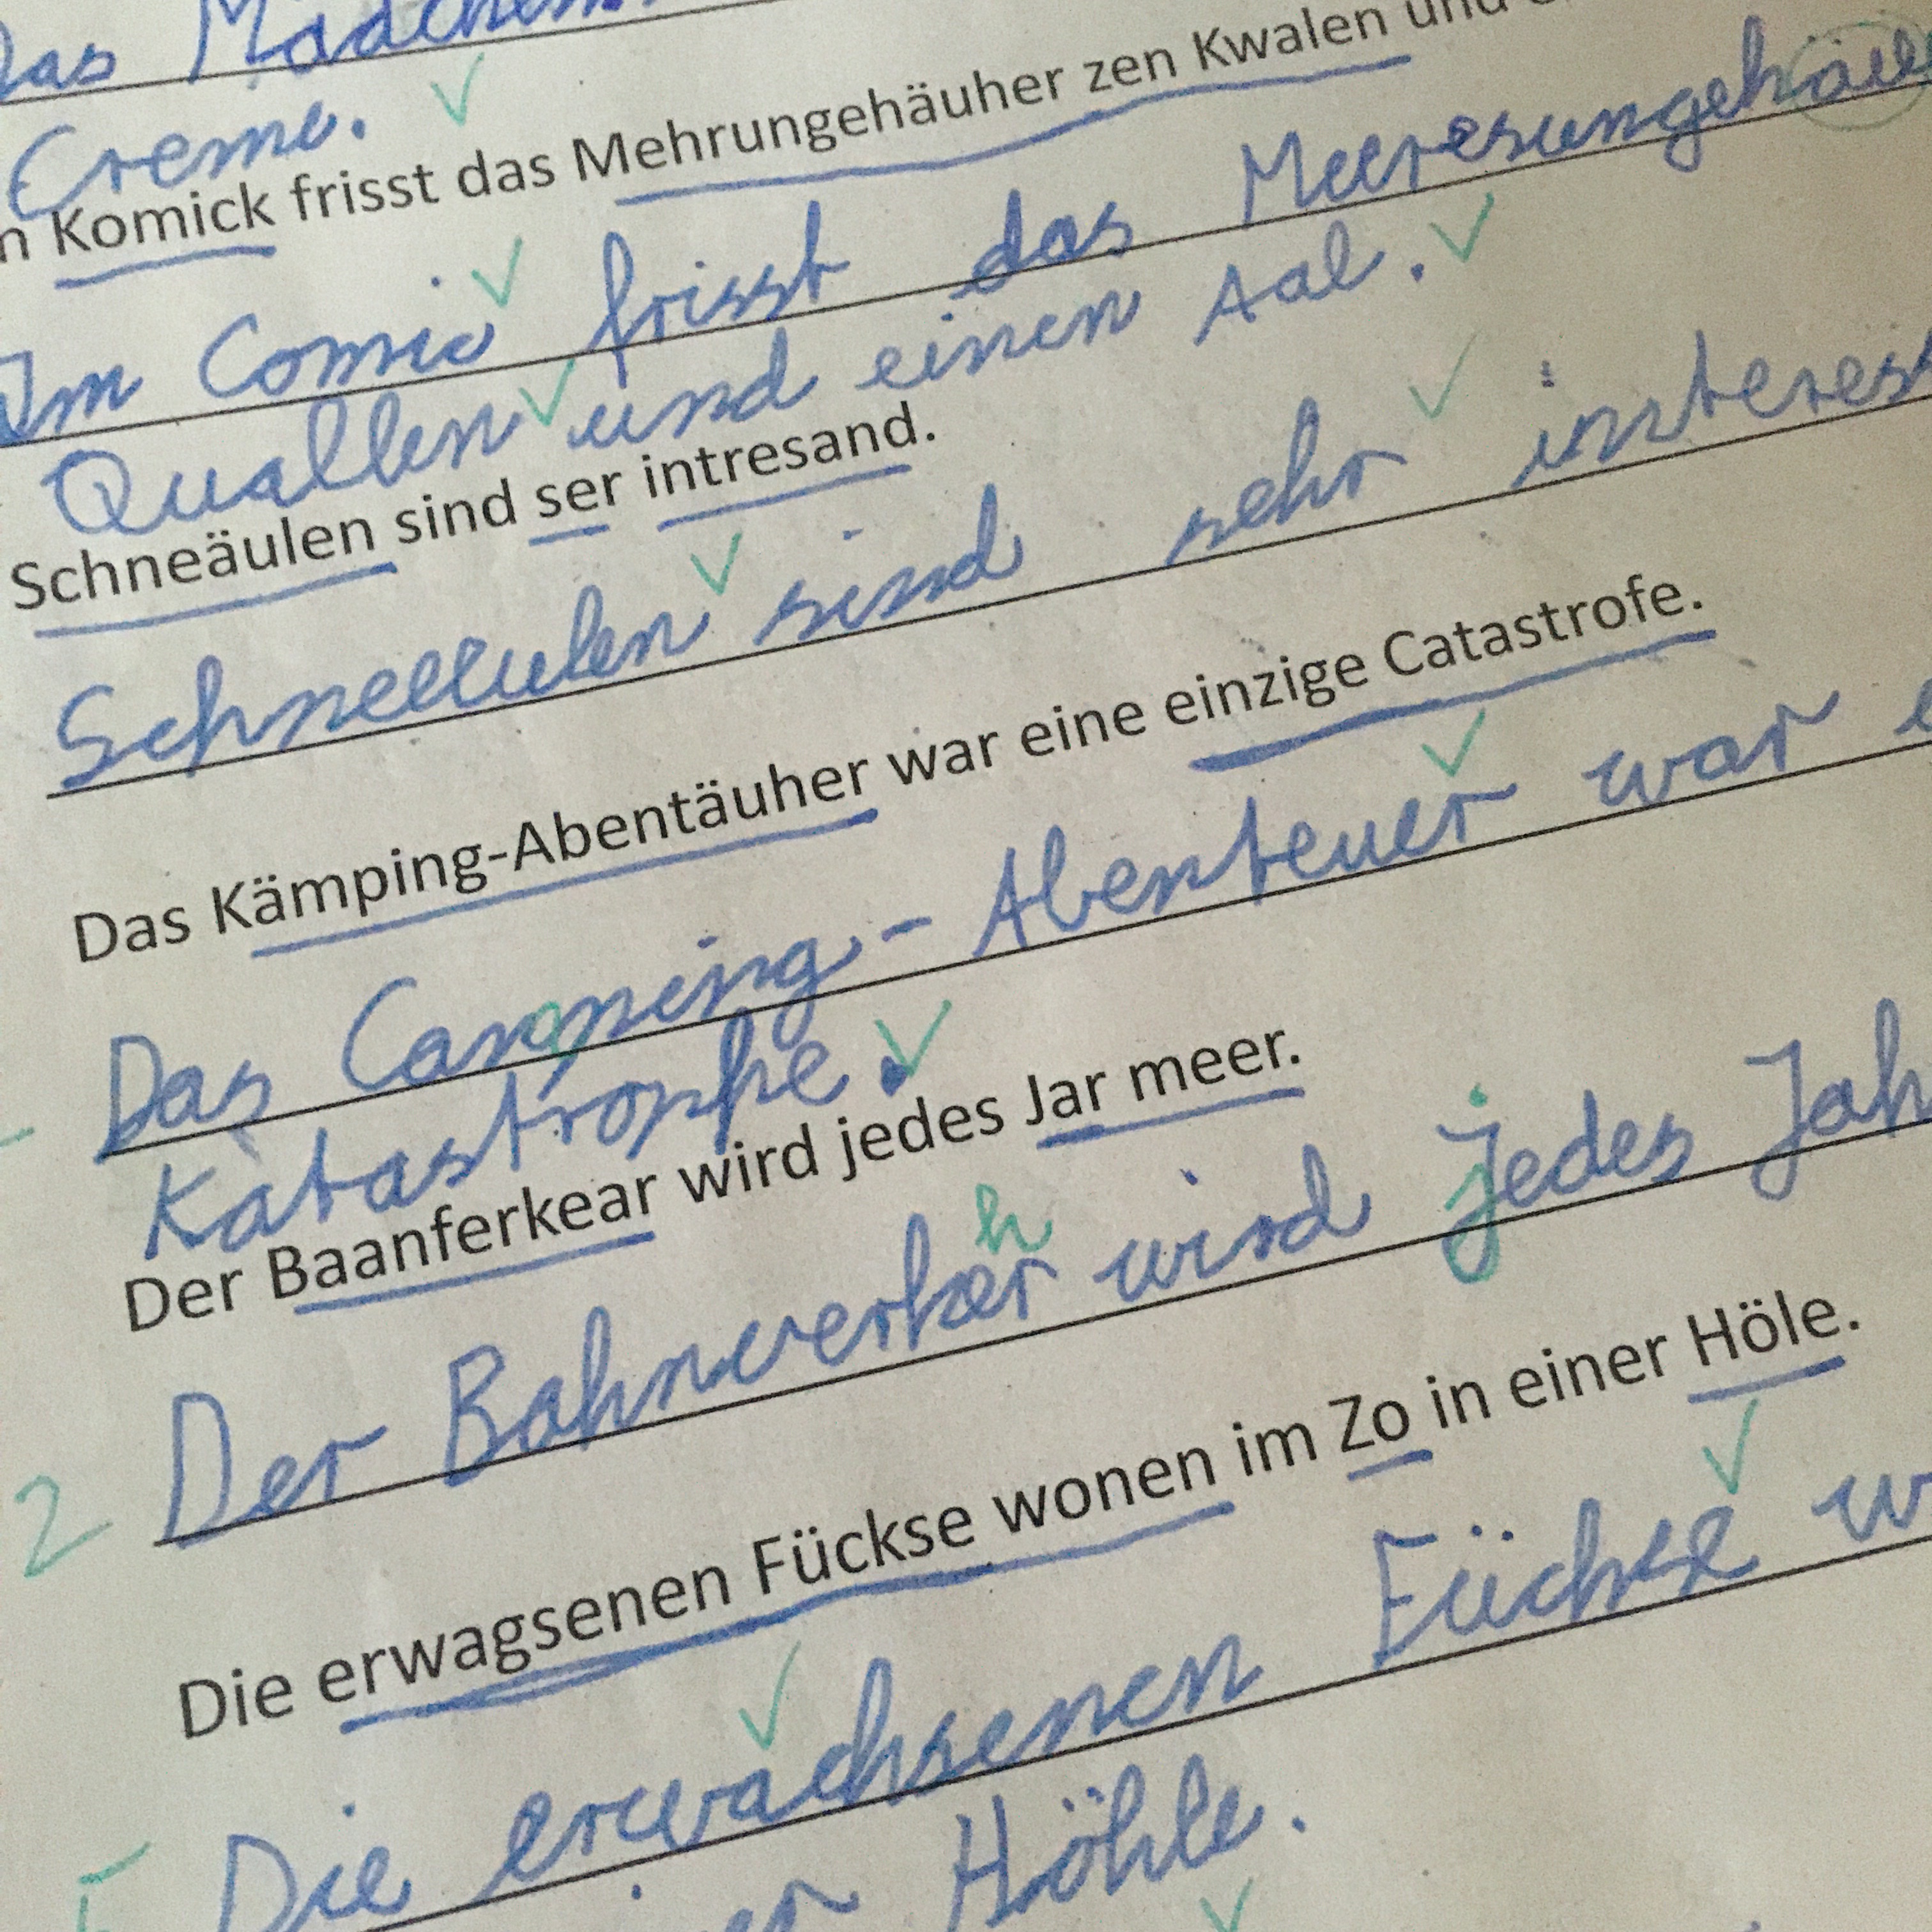 Das Mädchen
Creme.
n Komick frisst das Mehrungehäuher zen Kwalen und
Im Comic frisst das Meeresungehäu
Quallen und einen Aal.
Schneäulen sind ser intresand.
Schneeeulen sind sehr interes
Das Kämping-Abentäuher war eine einzige Catastrofe.
Das Camping-Abenteuer war e
Katastrophe.
Der Baanferkear wird jedes Jar meer.
h
2 Der Bahnverker wird jedes Jah
Die erwagsenen Fückse wonen im Zo in einer Höle.
Die erwachsenen Füchse w
ner Höhle.